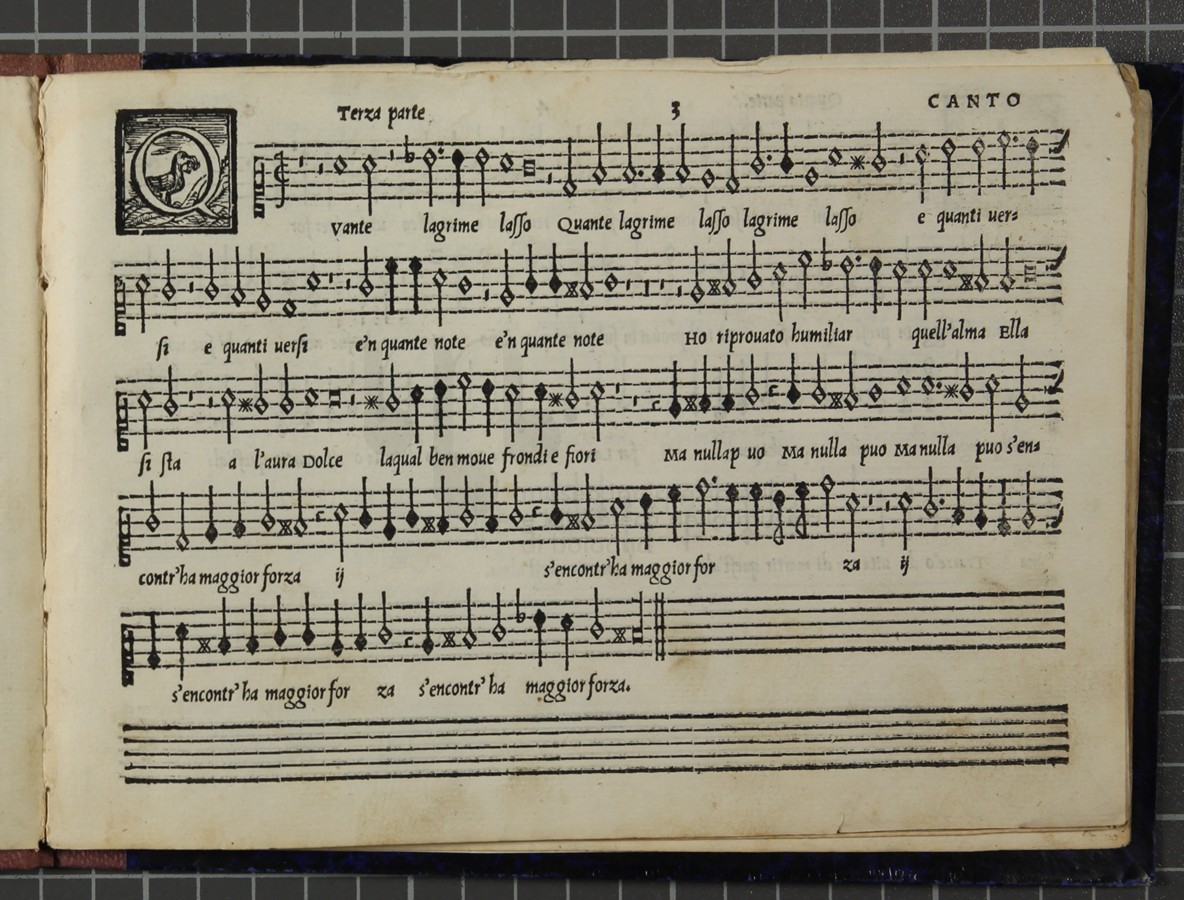 Terza parte 3 CANTO
Q
Vante lagrime lasso Quante lagrime lasso lagrime lasso e quanti uer=
si e quanti uersi e'n quante note e'n quante note Ho riprouato humiliar quell'alma Ella
si sta a l'aura Dolce laqual ben moue frondi e fiori Ma nullap uo Ma nulla puo Ma nulla puo s'en=
contr'ha maggior forza ij s'encontr'ha maggior for za ij
s'encontr'ha maggior for za s'encontr'ha maggior forza.